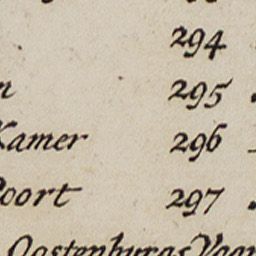 294
295
Kamer 296
Poort 297
Oostenburgs Voor